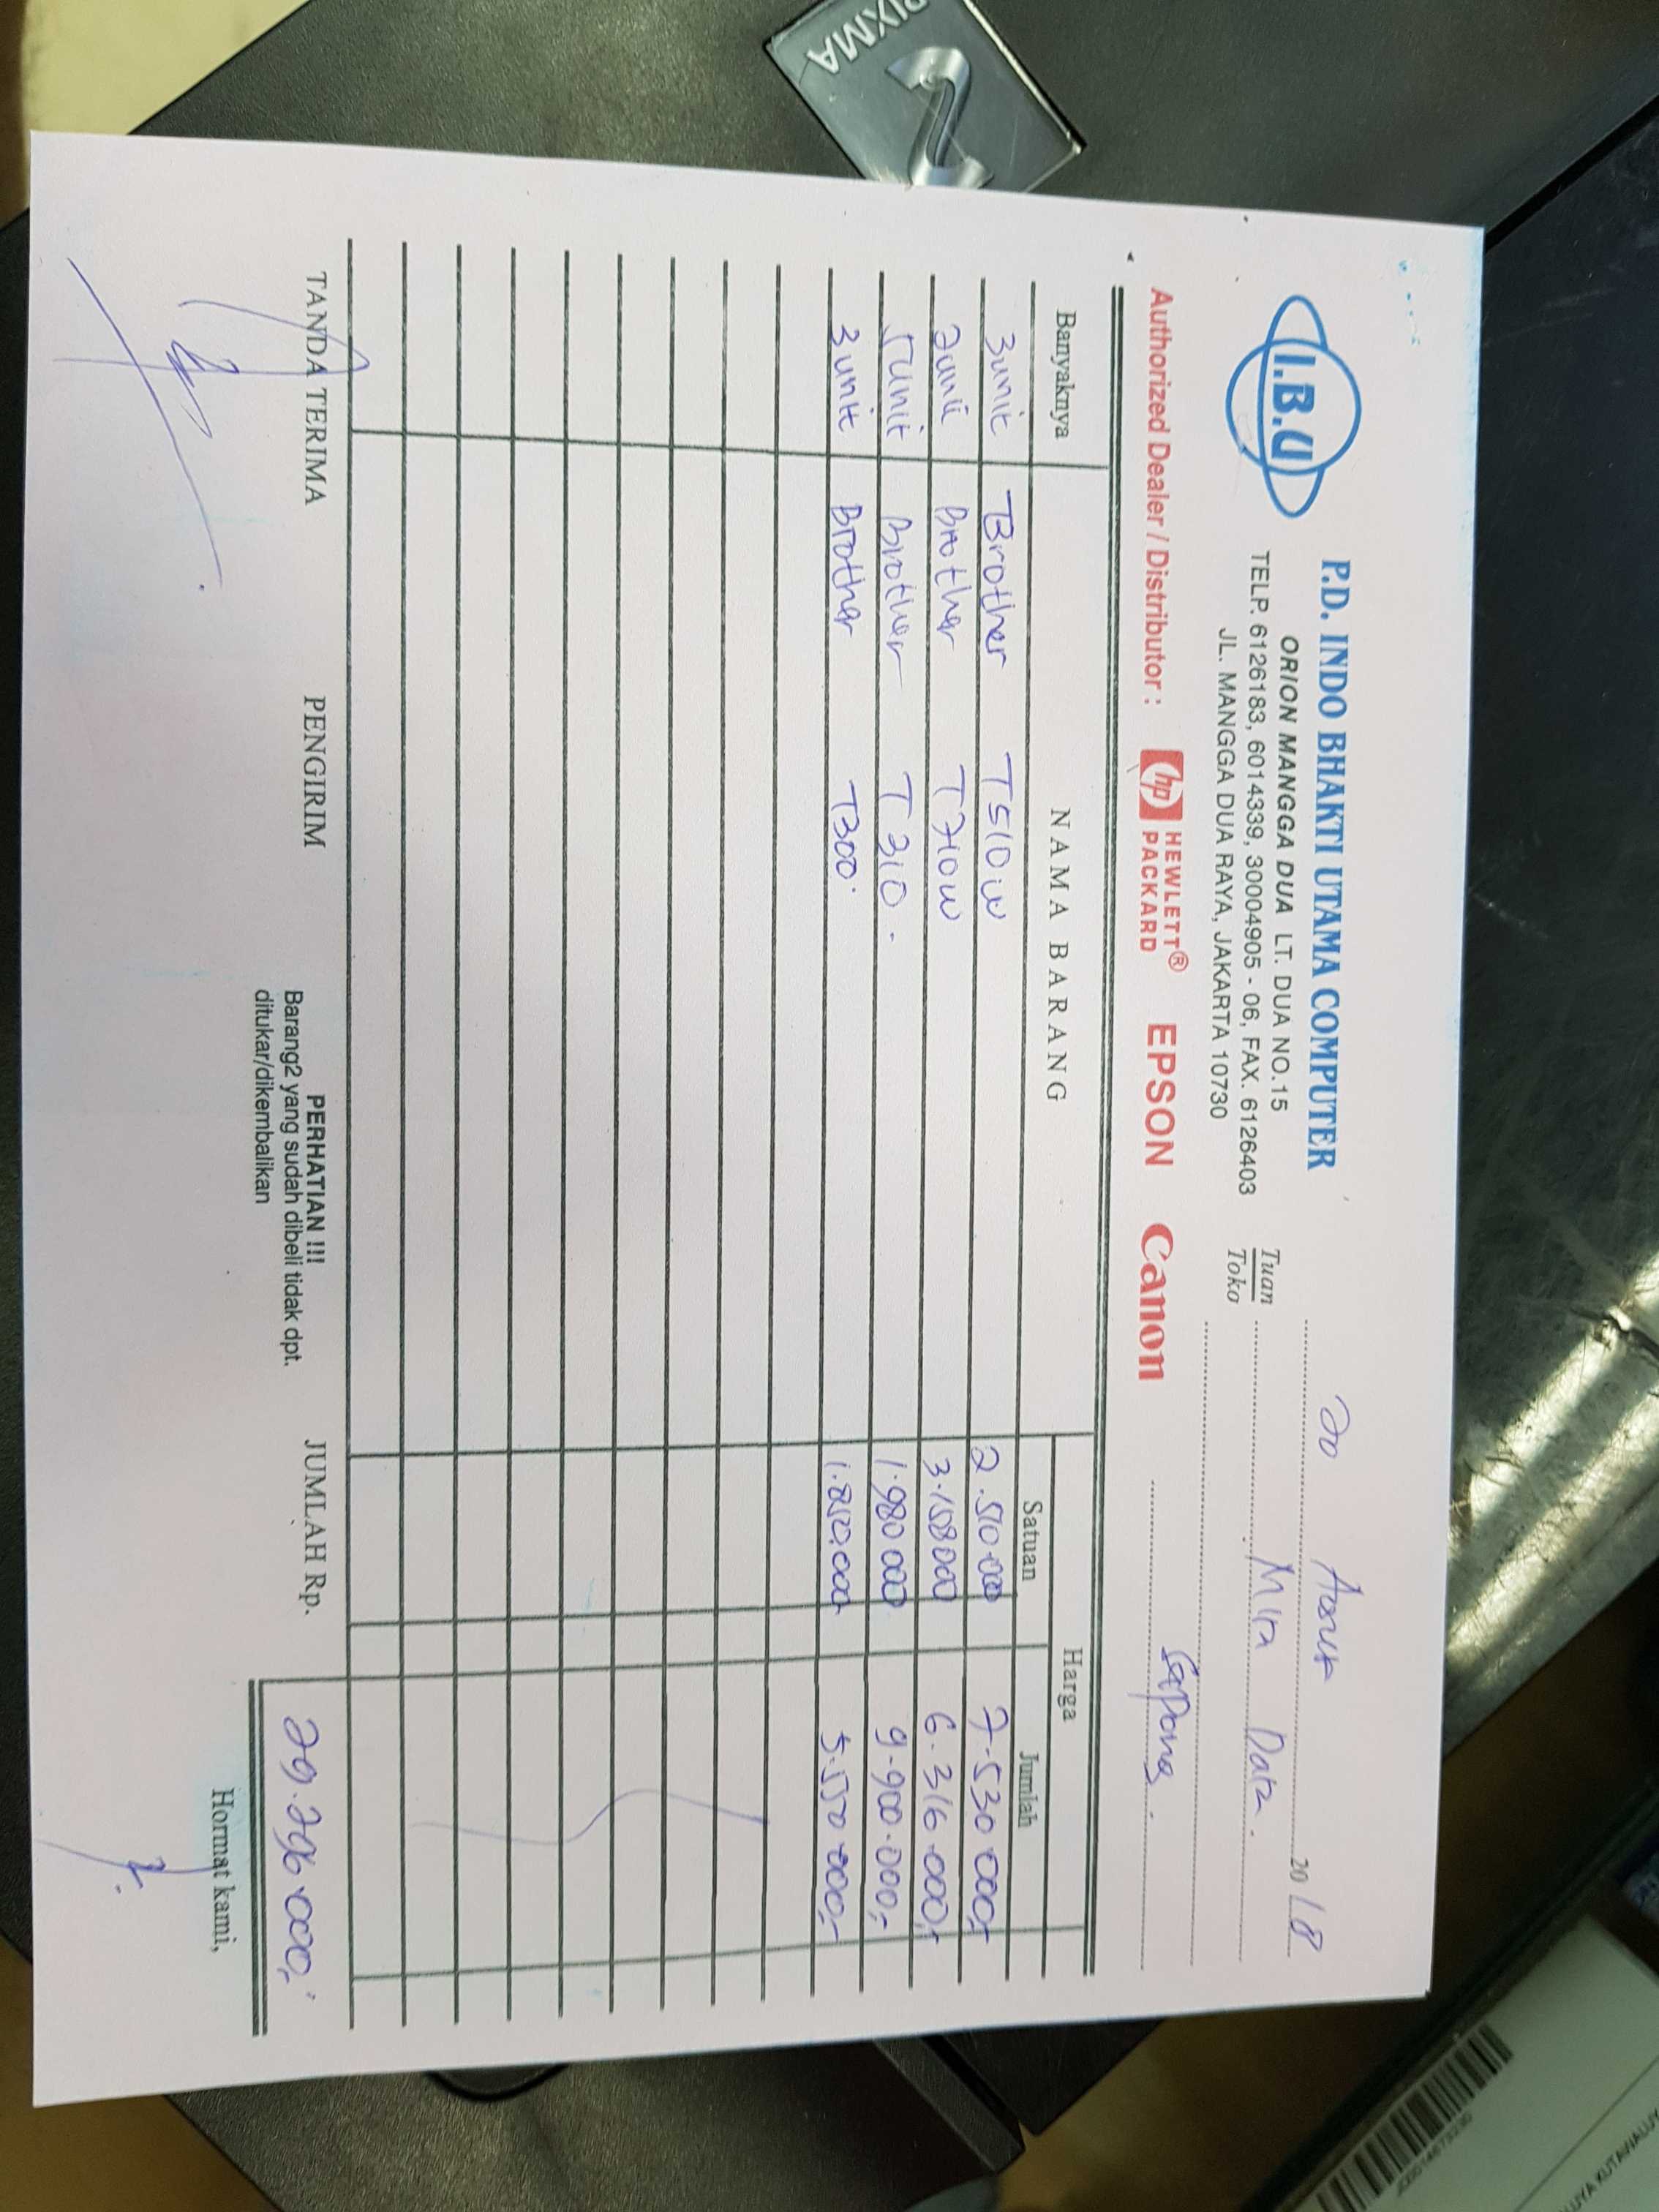 PIXMA
I.B.U
P.D. INDO BHAKTI UTAMA COMPUTER
ORION MANGGA DUA LT. DUA NO.15
TELP. 6126183, 6014339, 30004905 - 06, FAX. 6126403
JL. MANGGA DUA RAYA, JAKARTA 10730
20 2018
Tuan
Toko
Mita Data.
Serpong.
Authorized Dealer / Distributor : hp HEWLETT® PACKARD EPSON Canon
Banyaknya NAMA BARANG Harga
Satuan Jumlah
3 unit Brother T510w 2.510.000 7.530.000,-
2 unit Brother T710w 3.158.000 6.316.000,-
5 unit Brother T310. 1.980.000 9.900.000,-
3 unit Brother T300. 1.850.000 5.550.000,-
TANDA TERIMA PENGIRIM PERHATIAN !!! JUMLAH Rp. 29.296.000,-
Barang2 yang sudah dibeli tidak dpt.
ditukar/dikembalikan
Hormat kami,